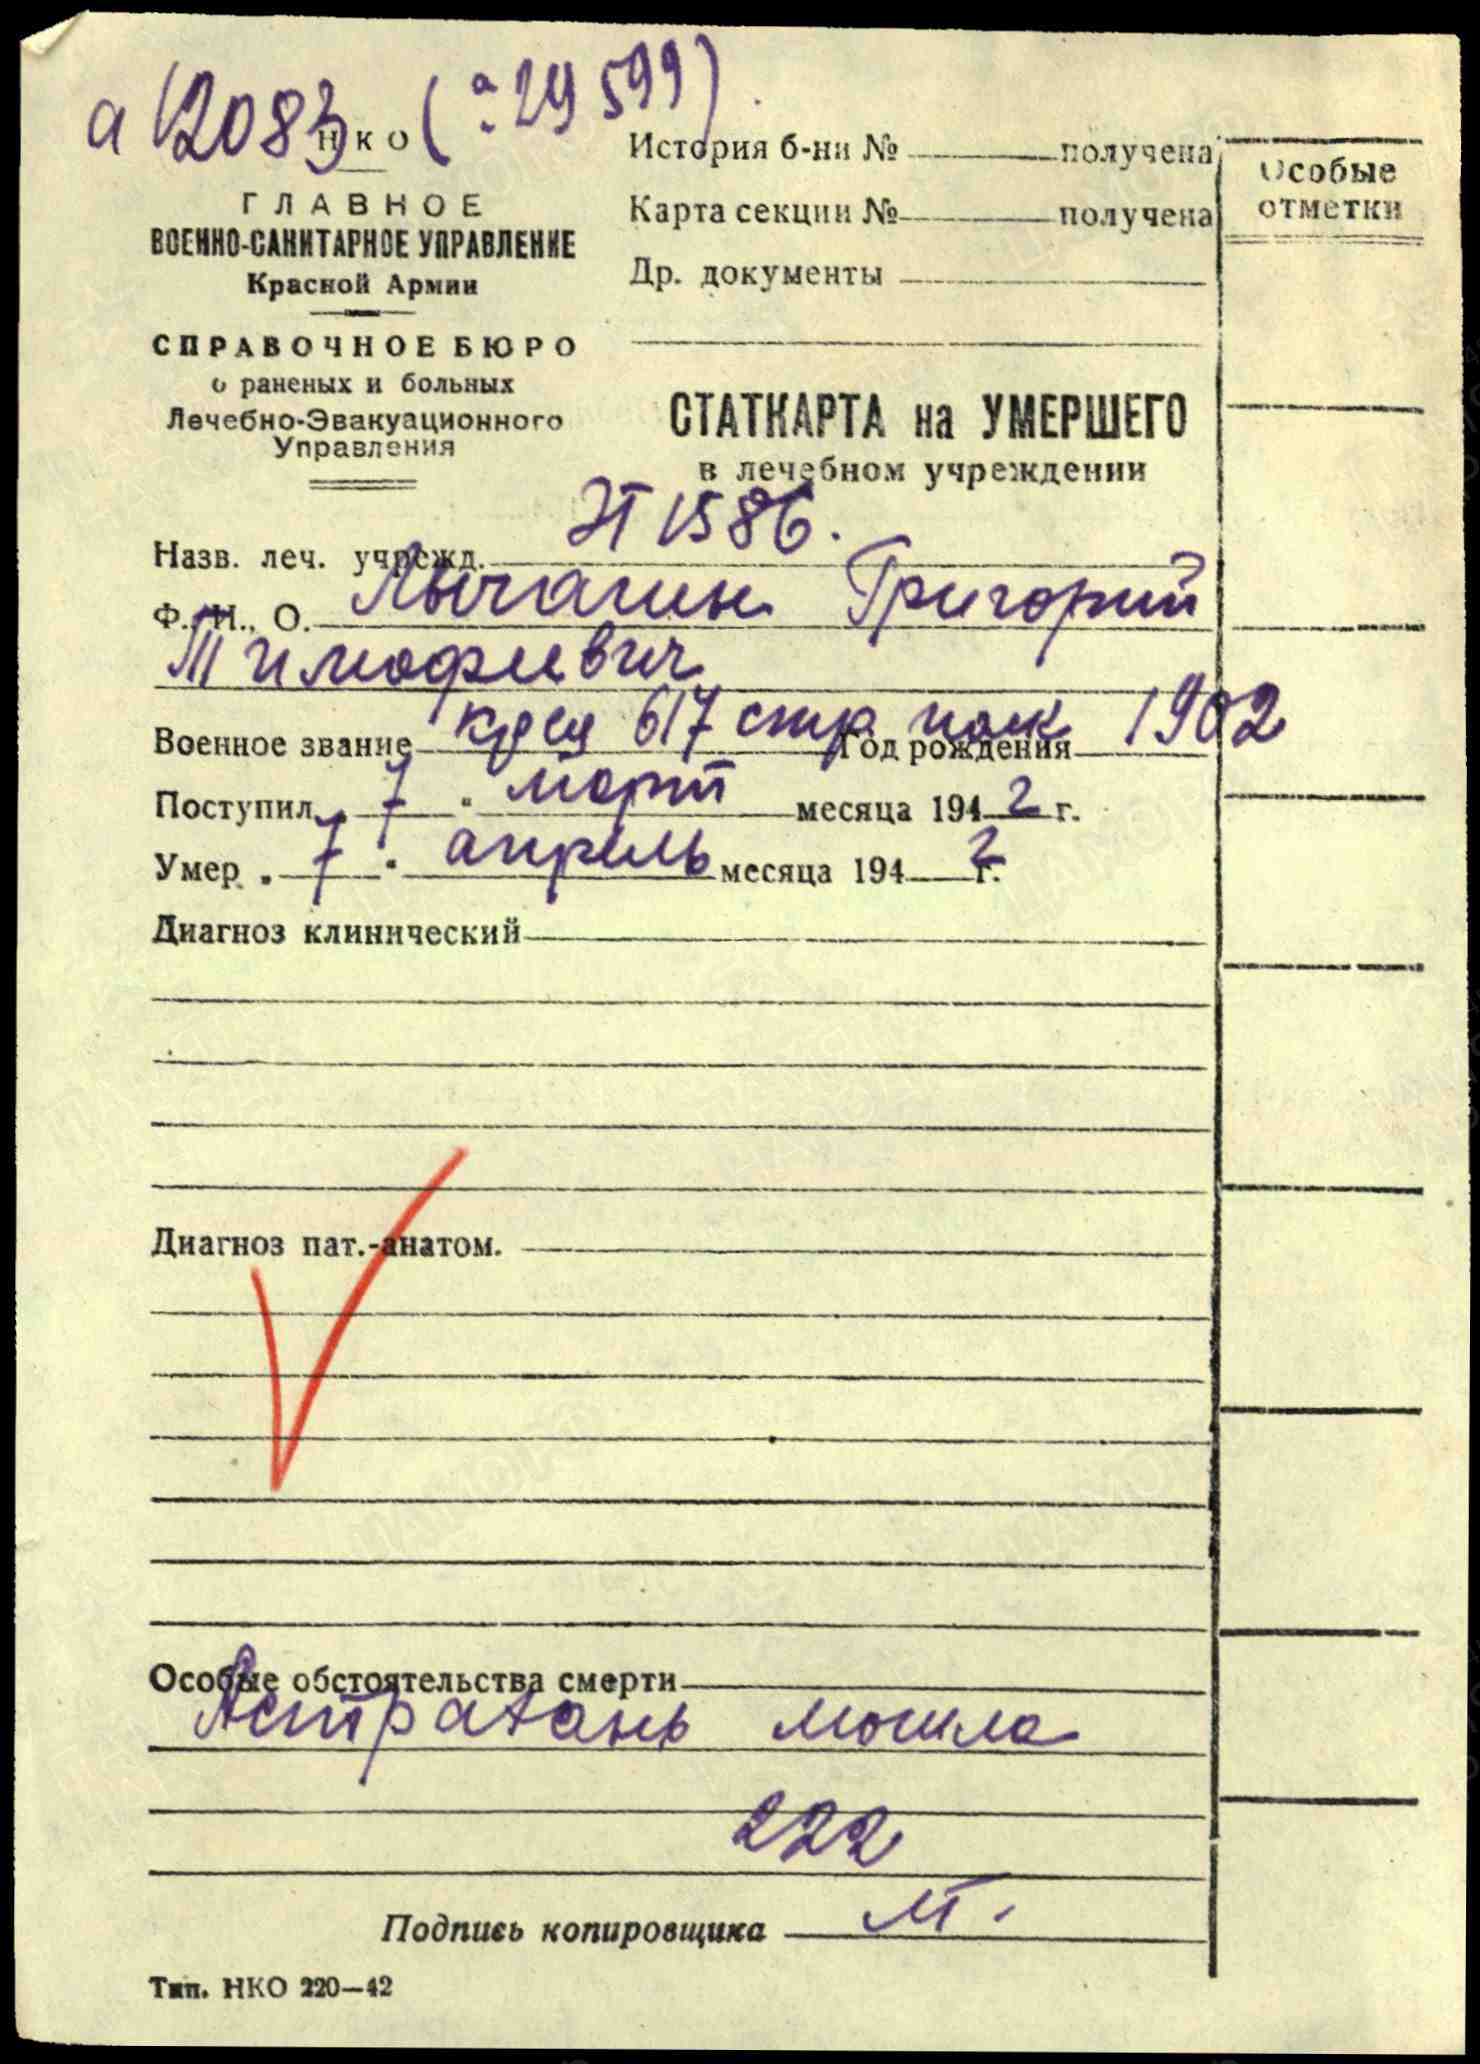 а 12083 (а 29599)
НКО
ГЛАВНОЕ
ВОЕННО-САНИТАРНОЕ УПРАВЛЕНИЕ
Красной Армии
СПРАВОЧНОЕ БЮРО
о раненых и больных
Лечебно-Эвакуационного
Управления
История б-ни № получена
Карта секции № получена
Др. документы
Особые
отметки
СТАТКАРТА на УМЕРШЕГО
в лечебном учреждении
Назв. леч. учрежд. ЭГ 1586.
Ф., И., О. Лычагин Григорий
Тимофеевич
Военное звание кр-ец 617 стр полк Год рождения 1902
Поступил „ 7 " март месяца 1942 г.
Умер „ 7 " апрель месяца 1942 г.
Диагноз клинический
Диагноз пат.-анатом.
Особые обстоятельства смерти
Астрахань могила
222
Подпись копировщика
Тип. НКО 220—42